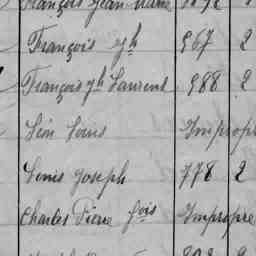 François Jean Marie
François Jh 967 2
François Jh Laurent 988 2
Léon Louis Impropre
Denis Joseph 778 2
Charles Pierre fois Impropre